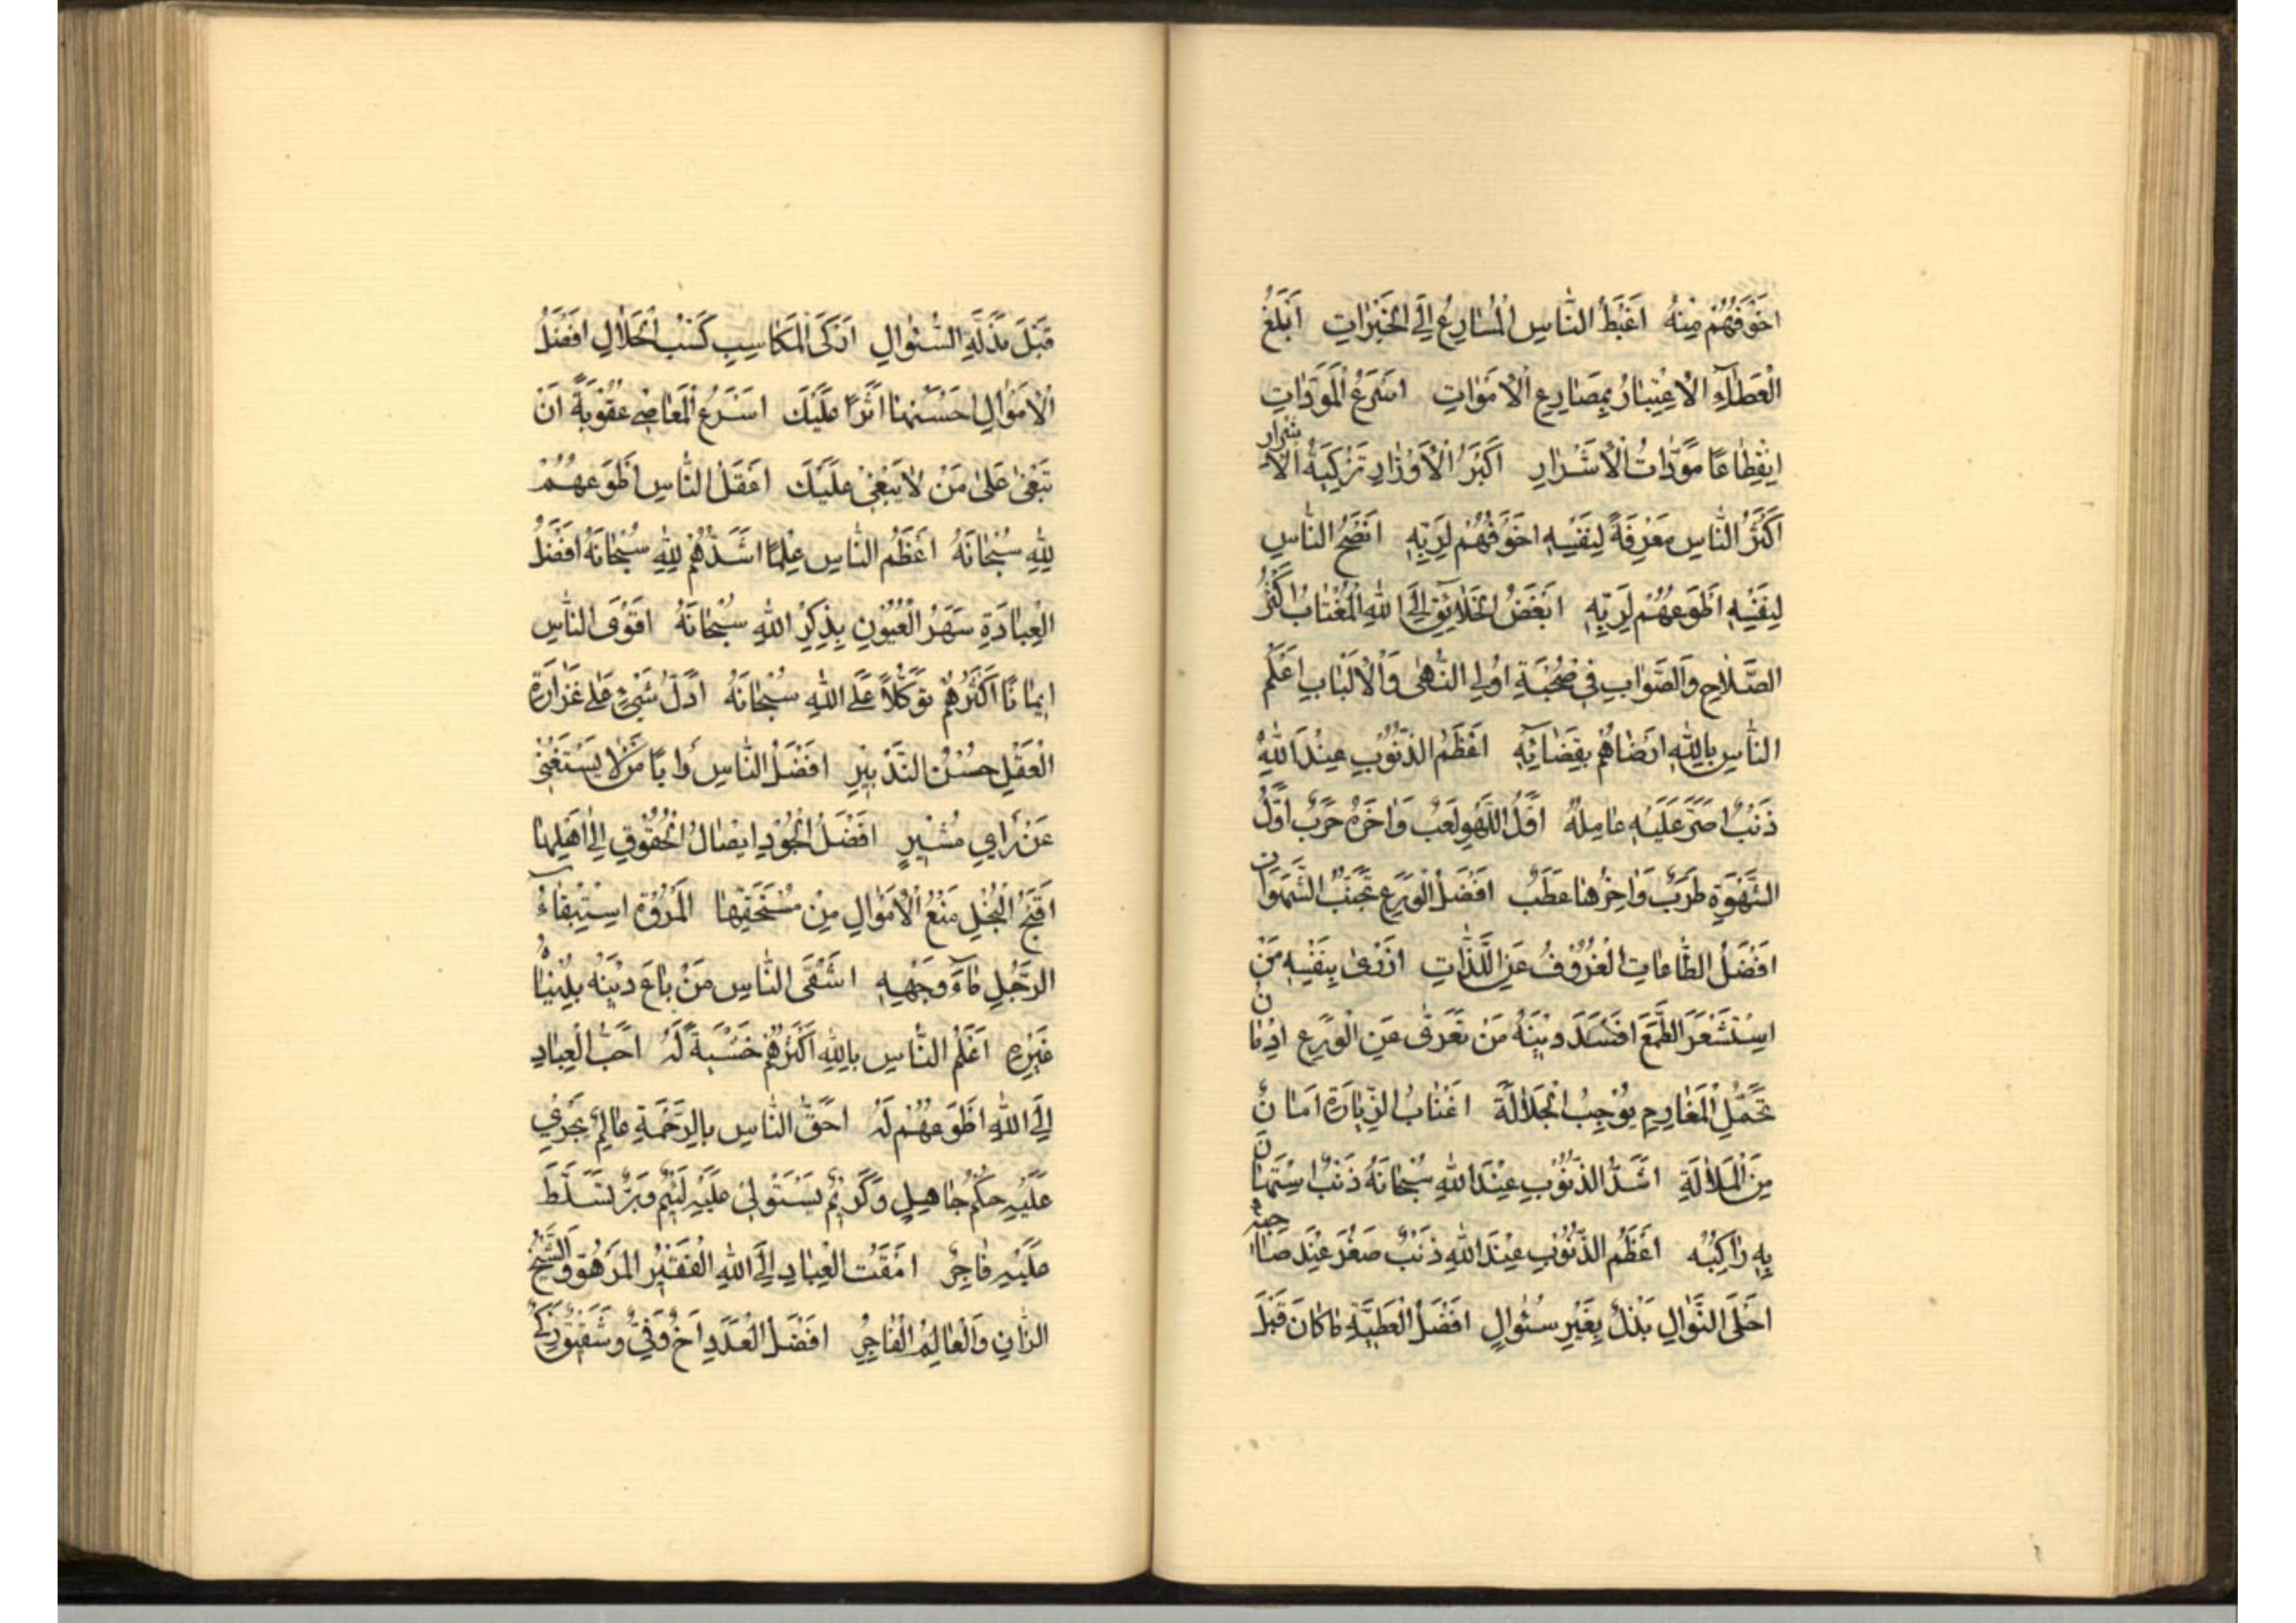 اَخْوَفُهُمْ مِنْهُ اَغْبَطُ النّاسِ الْمُسارِعُ اِلَى الْخَيْراتِ اَبْلَغُ
الْعِظاتِ الْاِعْتِبارُ بِمَصارِعِ الْاَمْواتِ اَسْرَعُ الْمَوَدّاتِ
اِنْقِطاعًا مَوَدّاتُ الْاَشْرارِ اَكْبَرُ الْاَوْزارِ تَزْكِيَةُ الْاَشْرارِ
اَكْثَرُ النّاسِ مَعْرِفَةً لِنَفْسِهِ اَخْوَفُهُمْ لِرَبِّهِ اَنْصَحُ النّاسِ
لِنَفْسِهِ اَطْوَعُهُمْ لِرَبِّهِ اَبْغَضُ الْخَلائِقِ اِلَى اللهِ الْمُغْتابُ اَكْثَرُ
الصَّلاحِ وَالصَّوابِ فِي صُحْبَةِ اُولِي النُّهى وَالْاَلْبابِ اَعْلَمُ
النّاسِ بِاللهِ اَرْضاهُمْ بِقَضائِهِ اَعْظَمُ الذُّنُوبِ عِنْدَ اللهِ
ذَنْبٌ اَصَرَّ عَلَيْهِ عامِلُهُ اَوَّلُ اللَّهْوِ لَعِبٌ وَاخِرُهُ حَرْبٌ اَوَّلُ
الشَّهْوَةِ طَرَبٌ وَاخِرُها عَطَبٌ اَفْضَلُ الْوَرَعِ تَجَنُّبُ الشَّهَواتِ
اَفْضَلُ الطّاعاتِ الْعُزُوفُ عَنِ اللَّذّاتِ اَزْرى بِنَفْسِهِ مَنِ
اسْتَشْعَرَ الطَّمَعَ اَفْسَدَ دِينَهُ مَنْ تَعَرّى عَنِ الْوَرَعِ اِدْمانُ
تَحَمُّلِ الْمَغارِمِ يُوجِبُ الْجَلالَةَ اِغْبابُ الزِّيارَةِ اَمانٌ
مِنَ الْمَلالَةِ اَشَدُّ الذُّنُوبِ عِنْدَ اللهِ سُبْحانَهُ ذَنْبٌ اسْتَهانَ
بِهِ راكِبُهُ اَعْظَمُ الذُّنُوبِ عِنْدَ اللهِ ذَنْبٌ صَغُرَ عِنْدَ صاحِبِهِ
اَحْلَى النَّوالِ بَذْلٌ بِغَيْرِ سُئوالٍ اَفْضَلُ الْعَطِيَّةِ ما كانَ قَبْلَ
قَبْلَ مَذَلَّةِ السُّئوالِ اَزْكَى الْمَكاسِبِ كَسْبُ الْحَلالِ اَفْضَلُ
الْاَمْوالِ اَحْسَنُها اَثَرًا عَلَيْكَ اَسْرَعُ الْمَعاصِي عُقُوبَةً اَنْ
تَبْغى عَلى مَنْ لا يَبْغى عَلَيْكَ اَعْقَلُ النّاسِ اَطْوَعُهُمْ
لِلّهِ سُبْحانَهُ اَعْظَمُ النّاسِ عِلْمًا اَشَدُّهُمْ لِلّهِ سُبْحانَهُ اَفْضَلُ
الْعِبادَةِ سَهَرُ الْعُيُونِ بِذِكْرِ اللهِ سُبْحانَهُ اَقْوَى النّاسِ
اِيمانًا اَكْثَرُهُمْ تَوَكُّلاً عَلَى اللهِ سُبْحانَهُ اَدَلُّ شَيْءٍ عَلى غَزارَةِ
الْعَقْلِ حُسْنُ التَّدْبِيرِ اَفْضَلُ النّاسِ رَأْيًا مَنْ لا يَسْتَغْنِي
عَنْ رَأْيِ مُشِيرٍ اَفْضَلُ الْجُودِ اِيصالُ الْحُقُوقِ اِلى اَهْلِها
اَقْبَحُ الْبُخْلِ مَنْعُ الْاَمْوالِ مِنْ مُسْتَحَقِّها الْمُرُوَّةُ اسْتِبْقاءُ
الرَّجُلِ ماءَ وَجْهِهِ اَشْقَى النّاسِ مَنْ باعَ دِينَهُ بِدُنْيا
غَيْرِهِ اَعْلَمُ النّاسِ بِاللهِ اَكْثَرُهُمْ خَشْيَةً لَهُ اَحَبُّ الْعِبادِ
اِلَى اللهِ اَطْوَعُهُمْ لَهُ اَحَقُّ النّاسِ بِالرَّحْمَةِ عالِمٌ يَجْرِي
عَلَيْهِ حُكْمُ جاهِلٍ وَكَرِيمٌ يَسْتَوْلِي عَلَيْهِ لَئِيمٌ وَبَرٌّ تَسَلَّطَ
عَلَيْهِ فاجِرٌ اَمْقَتُ الْعِبادِ اِلَى اللهِ الْفَقِيرُ الْمَزْهُوُّ وَالشَّيْخُ
الزّانِ وَالْعالِمُ الْفاجِرُ اَفْضَلُ الْعُدَدِ اَخٌ وَفِيٌّ وَشَقِيقٌ زَكِيٌّ